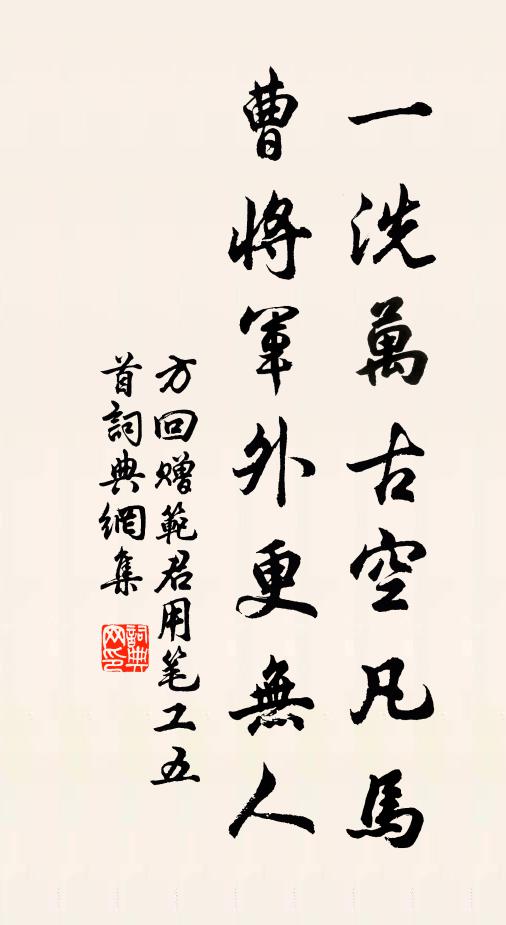 一洗萬古空凡馬
曹將軍外更無人
方回贈範君用笔工五
首詞典網集
詞典网印